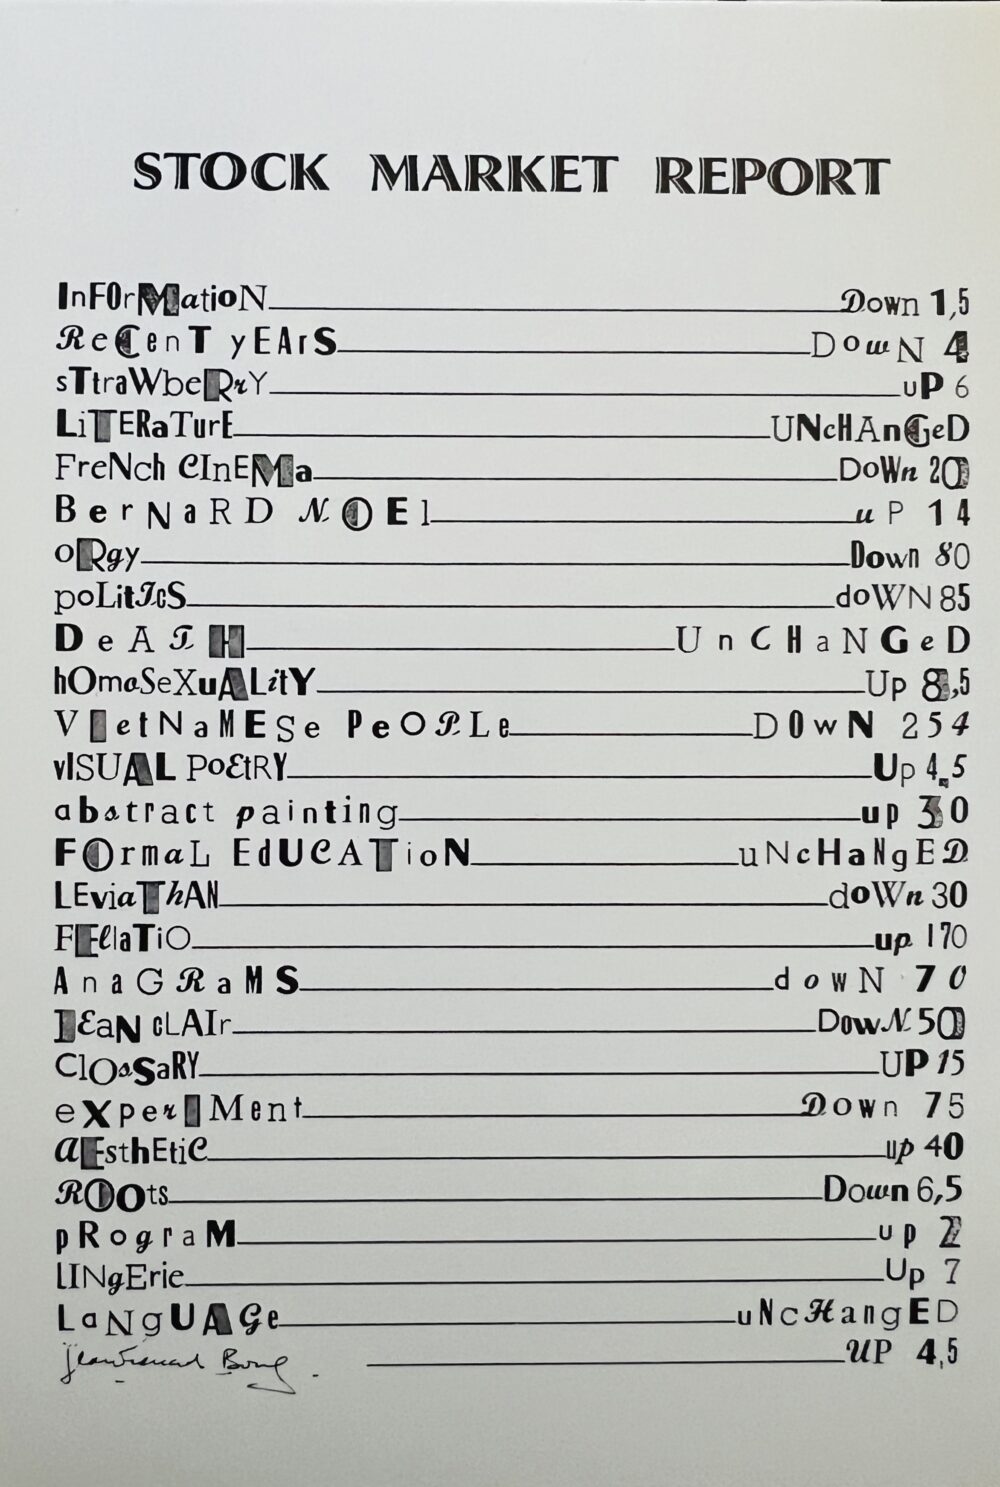 STOCK MARKET REPORT
InFOrMatioN Down 1,5
ReCenT yEArS DowN 4
sTtraWbeRrY uP 6
LiTERaTurE UNcHAnGeD
FreNch CInEMa DoWn 20
BerNaRD NOEl uP 14
oRgy Down 80
poLitIcS doWN 85
DeATH UnCHaNGeD
hOmoSeXuALitY Up 8,5
VIetNaMESe PeOPLe D0wN 254
vISUAL PoEtRY Up 4,5
abstract painting up 30
FOrmaL EdUCATioN uNcHaNgED
LEviaThAN doWn 30
FEllaTiO up 170
AnaGRaMS dowN 70
JEaN cLAIr DowN 50
ClOssaRY UP 15
eXperIMent Down 75
aEsthEtiC up 40
ROOts Down 6,5
pRograM up 2
LINgErie Up 7
LaNgUAGe uNcHangED
UP 4,5